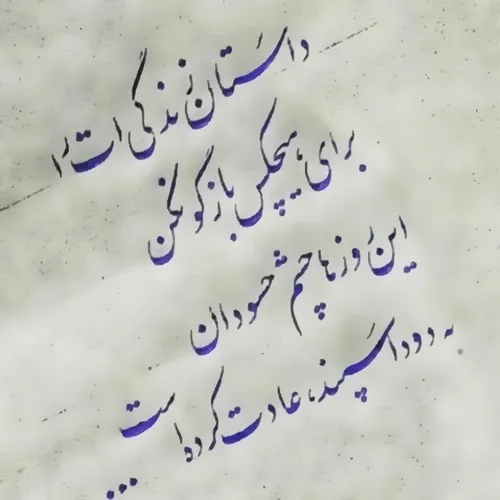 داستان زندگی ات را
برای هیچکس بازگو نکن
این روزها چشم حسودان
به دود اسپند، عادت کرده است...